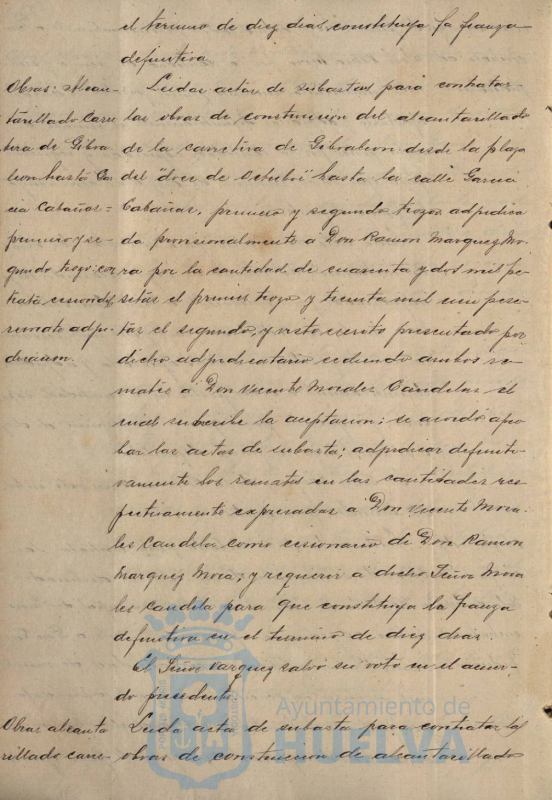 el termino de diez dias, constituya la fianza
definitiva.
Obras: Alcan-
tarillado Carre
tera de Gibra
leon hasta Gar
cia Cabañas =
primero y se-
gundo trozo: con
trata cesion del
remate adju-
dicacion.
Leidas actas de subastas para contratar
las obras de construccion del alcantarillado
de la carretera de Gibraleon desde la plaza
del "doce de Octubre" hasta la calle Garcia
Cabañas, primero y segundo trozos adjudica
da provisionalmente á Don Ramon Marquez Mo-
ra por la cantidad de cuarenta y dos mil pe-
setas el primer trozo y treinta mil cien pese-
tas el segundo, y visto escrito presentado por
dicho adjudicatario cediendo ambos re-
mates á Don Vicente Morales Candelas el
cual subscribe la aceptacion; se acordó apro
bar las actas de subasta; adjudicar definiti-
vamente los remates en las cantidades res-
pectivamente expresadas á Don Vicente Mora-
les Candela como cesionario de Don Ramon
Marquez Mora; y requerir á dicho Señor Mora
les Candela para que constituya la fianza
definitiva en el termino de diez dias.
El Señor Vazquez salvó su voto en el acuer-
do precedente.
Obras alcanta
rillado carre-
Leida acta de subasta para contratar las
obras de construccion de alcantarillado
Ayuntamiento de
HUELVA